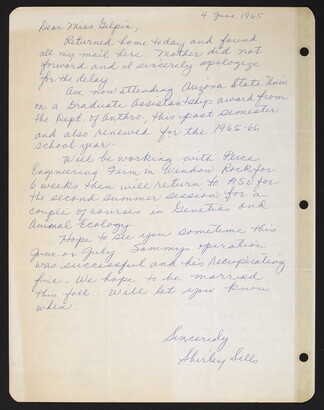 4 June, 1965
Dear Miss Gilpin,
Returned home today and found
all my mail here. Mother did not
forward and I sincerely apologize
for the delay.
Am now attending Arizona State Univ
on a Graduate Assistantship award from
the Dept. of Anthro., this past semester
and also renewed for the 1965-66
school year.
Will be working with Peice
Engineering Firm in Window Rock for
6 weeks then will return to ASU for
the second summer session for a
couple of courses in Genetics and
Animal Ecology.
Hope to see you sometime this
June or July. Sammy's operation
was successful and he's recuperating
fine. We hope to be married
this fall. Will let you know
when.
Sincerely
Shirley Sells